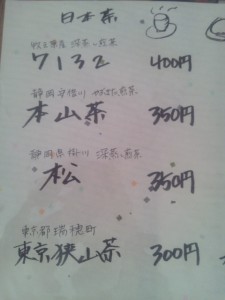 日本茶
牧之原産 深蒸し煎茶
7132 400円
静岡 安倍川 やぶきた煎茶
本山茶 350円
静岡県掛川 深蒸し煎茶
松 350円
東京都瑞穂町
東京狭山茶 300円